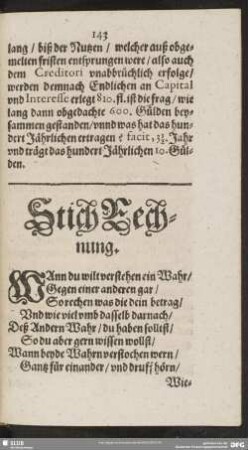 143
lang / biß der Nutzen / welcher auß obge-
melten fristen entsprungen were / also auch
dem Creditori vnabbrüchlich erfolge /
werden demnach Endlichen an Capital
vnd Interesse erlegt 810. fl. ist die frag / wie
lang dann obgedachte 600. Gülden bey-
sammen gestanden / vnnd was hat das hun-
dert Jährlichen ertragen? facit, 3½. Jahr
vnd trägt das hundert Jährlichen 10. Gül-
den.
Stich Rech-
nung.
WAnn du wilt verstehen ein Wahr /
Gegen einer anderen gar /
So rechen was die dein betrag /
Vnd wie viel vmb dasselb darnach /
Deß Andern Wahr / du haben sollest /
So du aber gern wissen wollst /
Wann beyde Wahrn verstochen wern /
Gantz für einander / vnd drüff / hörn /
Wie-
SLUB